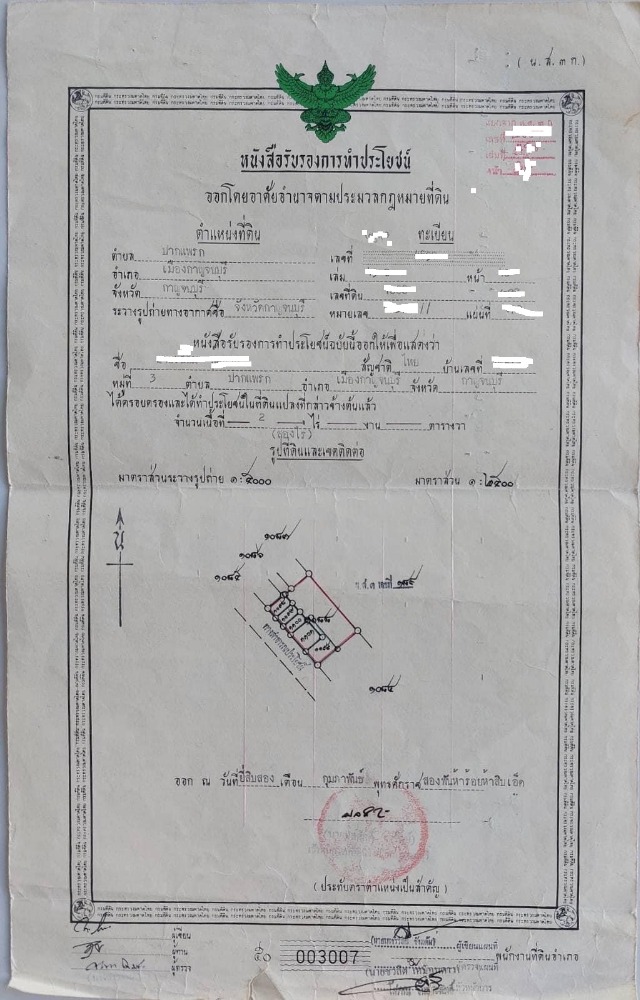 (น.ส.๓ ก.)
หนังสือรับรองการทำประโยชน์
ออกโดยอาศัยอำนาจตามประมวลกฎหมายที่ดิน
ตำแหน่งที่ดิน ทะเบียน
ตำบล ปากแพรก เลขที่
อำเภอ เมืองกาญจนบุรี เล่ม หน้า
จังหวัด กาญจนบุรี เลขที่ดิน
ระวางรูปถ่ายทางอากาศชื่อ จังหวัดกาญจนบุรี หมายเลข แผ่นที่
หนังสือรับรองการทำประโยชน์ฉบับนี้ออกให้เพื่อแสดงว่า
ชื่อ สัญชาติ ไทย บ้านเลขที่
หมู่ที่ 3 ตำบล ปากแพรก อำเภอ เมืองกาญจนบุรี จังหวัด กาญจนบุรี
ได้ครอบครองและได้ทำประโยชน์ในที่ดินแปลงที่กล่าวข้างต้นแล้ว
จำนวนเนื้อที่ 2 ไร่ งาน ตารางวา
(สองไร่)
รูปที่ดินและเขตติดต่อ
มาตราส่วนระวางรูปถ่าย ๑:๕๐๐๐ มาตราส่วน ๑:๒๕๐๐
น
๑๐๘๗
๑๐๘๖
๑๐๘๕
๑๐๘๘
ทางสาธารณประโยชน์
๑๐๘๔
ออก ณ วันที่ ยี่สิบสอง เดือน กุมภาพันธ์ พุทธศักราช สองพันห้าร้อยห้าสิบเอ็ด
(ประทับตราตำแหน่งเป็นสำคัญ)
ผู้เขียน
ผู้ทาน
ผู้ตรวจ
003007
ผู้เขียนแผนที่
พนักงานที่ดินอำเภอ